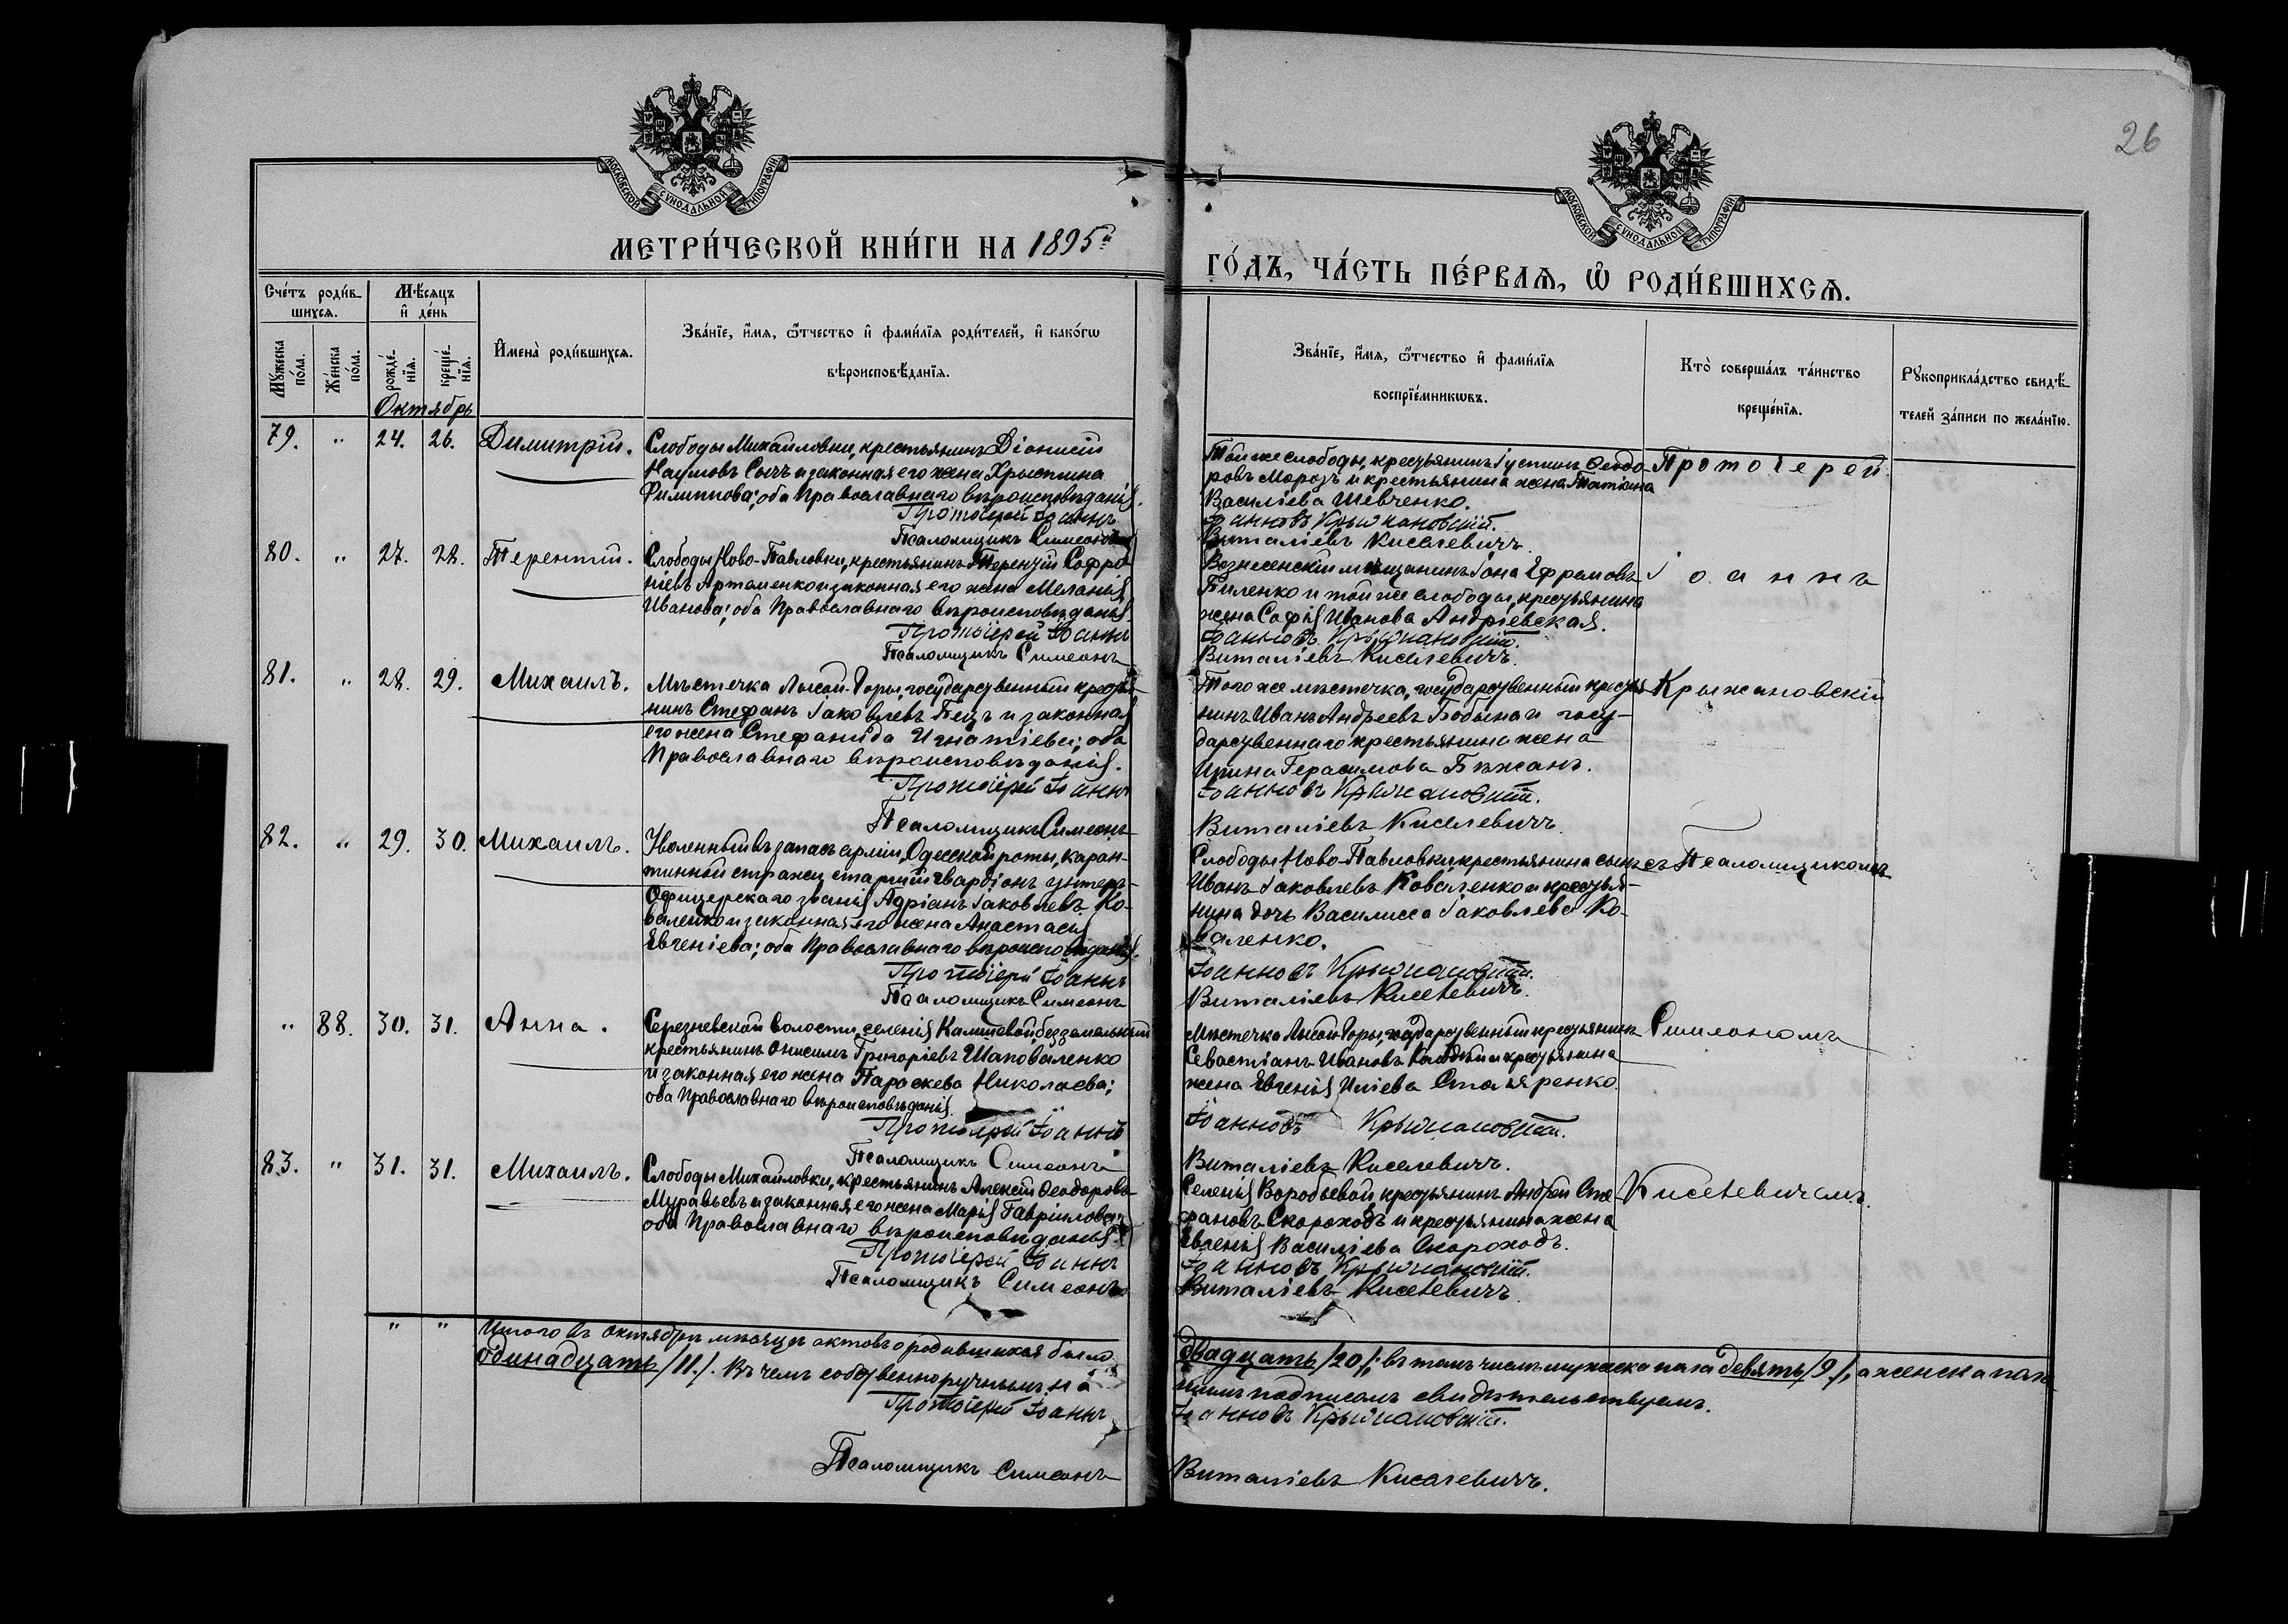 26
МОСКОВСКОЙ СѴНОДАЛЬНОЙ ТИПОГРАФІИ
МОСКОВСКОЙ СѴНОДАЛЬНОЙ ТИПОГРАФІИ
МЕТРИ́ЧЕСКОЙ КНИ́ГИ НА 1895й
ГО́ДЪ, ЧА́СТЬ ПЕ́РВАѦ, Ѡ РОДИ́ВШИХСѦ.
Сче́тъ роди́в-
шихсѧ.
Мꙋ́жеска
по́ла.
Же́нска
по́ла.
Мѣ́сѧцъ
и҆ де́нь
рожде́-
нїѧ.
креще́-
нїѧ.
Октябрь
И҆мена̀ роди́вшихсѧ.
Зва́нїе, и҆́мѧ, ѻ҆́тчество и҆ фами́лїѧ роди́телей, и҆ како́гѡ
вѣроисповѣ́данїѧ.
Зва́нїе, и҆́мѧ, ѻ҆́тчество и҆ фами́лїѧ
воспрїе́мникѡвъ.
Кто̀ соверша́лъ та́инство
креще́нїѧ.
Рꙋкоприкла́дство свидѣ́-
телей за́писи по жела́нїю.
79. " 24. 26. Димитрій.
Слободы Михайловки, крестьянинъ Діонисій
Наумовъ Сычъ и законная его жена Христина
Филиппова; оба Православнаго вѣроисповѣданія.
Протоіерей Іоаннъ
Псаломщикъ Симеонъ
Той же слободы, крестьянинъ Іустинъ Ѳеодо-
ровъ Морозъ и крестьянина жена Татіана
Василіева Шевченко.
Іоанновъ Крыжановскій.
Виталіевъ Киселевичъ.
Протоіерей
80. " 27. 28. Терентій.
Слободы Ново-Павловки, крестьянинъ Терентій Софро-
ніевъ Артеменко и законная его жена Меланія
Иванова; оба Православнаго вѣроисповѣданія.
Протоіерей Іоаннъ
Псаломщикъ Симеонъ
Вознесенскій мѣщанинъ Іона Ефремовъ
Пиленко и той же слободы, крестьянина
жена Софія Иванова Андріевская.
Іоанновъ Крыжановскій.
Виталіевъ Киселевичъ.
Іоаннъ
81. " 28. 29. Михаилъ.
Мѣстечка Лысой-Горы, государственный крестья-
нинъ Стефанъ Іаковлевъ Бецъ и законная
его жена Стефанида Игнатіева; оба
Православнаго вѣроисповѣданія.
Протоіерей Іоаннъ
Псаломщикъ Симеонъ
Того же мѣстечка, государственный крестья-
нинъ Иванъ Андреевъ Бабына и госу-
дарственнаго крестьянина жена
Ирина Герасимова Бѣжанъ.
Іоанновъ Крыжановскій.
Виталіевъ Киселевичъ.
Крыжановскій
82. " 29. 30. Михаилъ.
Уволенный въ запасъ арміи, Одесской роты, каран-
тинной стражи старшій гвардіонъ унтеръ-
Офицерскаго званія Адріанъ Іаковлевъ Ко-
валенко и законная его жена Анастасія
Евгеніева; оба Православнаго вѣроисповѣданія.
Протоіерей Іоаннъ
Псаломщикъ Симеонъ
Слободы Ново-Павловки, крестьянина сынъ
Иванъ Іаковлевъ Коваленко и крестья-
нина дочь Василисса Іаковлева Ко-
валенко.
Іоанновъ Крыжановскій.
Виталіевъ Киселевичъ.
съ Псаломщикомъ
" 88. 30. 31. Анна.
волости, селенія безземельный
крестьянинъ Онисимъ Григоріевъ Шаповаленко
и законная его жена Параскева Николаева;
оба Православнаго вѣроисповѣданія.
Протоіерей Іоаннъ
Псаломщикъ Симеонъ
Мѣстечка Лысой Горы, государственный крестьянинъ
Севастіанъ Ивановъ и крестьянина
жена Евгенія Иліева Столяренко
Іоанновъ Крыжановскій.
Виталіевъ Киселевичъ.
Симеономъ
83. " 31. 31. Михаилъ.
Слободы Михайловки, крестьянинъ Алексій Ѳеодоровъ
Муравьевъ и законная его жена Марія Гавріилова;
оба Православнаго вѣроисповѣданія.
Протоіерей Іоаннъ
Псаломщикъ Симеонъ
Селенія Воробьевой, крестьянинъ Андрей Сте-
фановъ Скороходъ и крестьянина жена
Евгенія Василіева Скороходъ.
Іоанновъ Крыжановскій.
Виталіевъ Киселевичъ
Киселевичемъ.
" " Итого въ октябрѣ мѣсяцѣ актовъ о родившихся было
двадцать /20/; въ томъ числѣ мужеска пола девять /9/, а женска пола
одинадцать /11/. Въ чемъ собственноручнымъ на-
шимъ подписомъ свидѣтельствуемъ.
Протоіерей Іоаннъ
Іоанновъ Крыжановскій.
Псаломщикъ Симеонъ
Виталіевъ Киселевичъ.